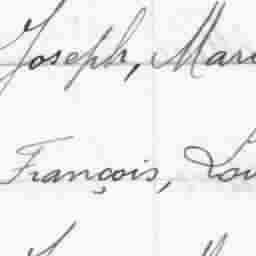 Joseph, Mari
François, Lou